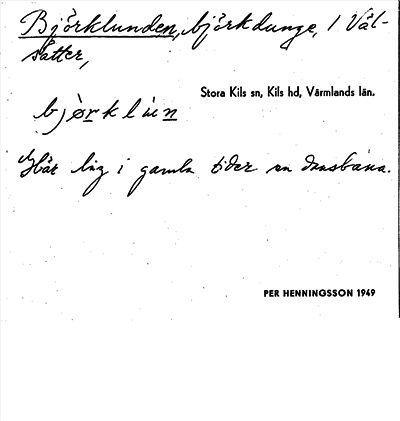 Björklunden, björkdunge, 1 Väl-
sätter,
Stora Kils sn, Kils hd, Värmlands län.
bjørklùn
Här låg i gamla tider en dansbana.
PER HENNINGSSON 1949